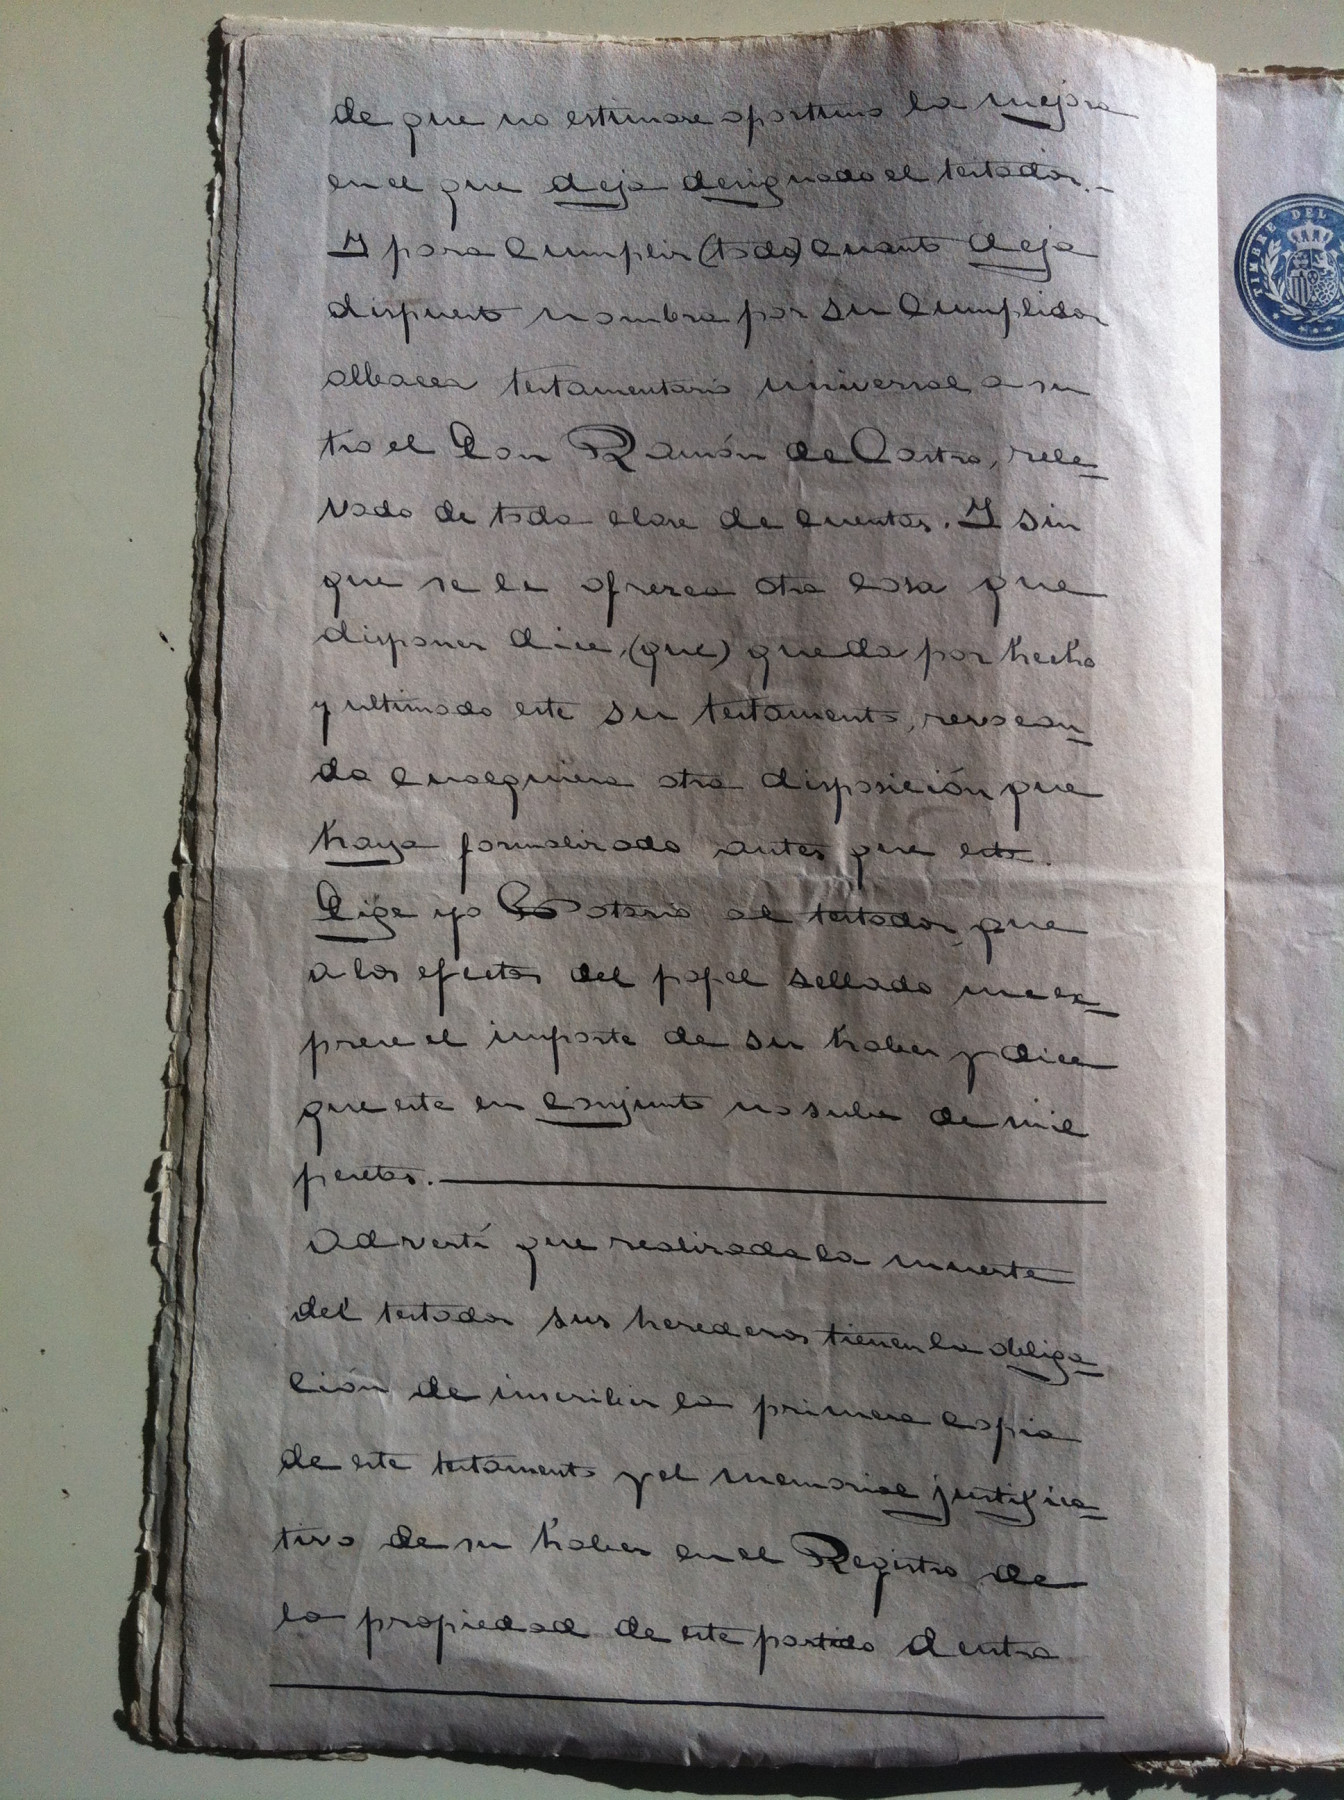 de que no estimare oportuno la mejora
en el que deja designado el testador.-
Y para cumplir (todo) cuanto deja
dispuesto nombra por su cumplidor
albacea testamentario universal, a su
tio el Don Ramón de Castro, rele-
vado de toda clase de cuentas. Y sin
que se le ofrezca otra cosa que
disponer dice, (que) queda por hecho
y ultimado este su testamento, revocan-
do cualquiera otra disposición que
haya formalizado antes que esta.
Dige yo Notario al testador, que
a los efectos del papel sellado me ex-
prese el importe de su haber y dice
que este en conjunto no sube de mil
pesetas.
Advertí que realizada la muerte
del testador sus herederos tienen la obliga-
ción de inscribir la primera copia
de este testamento y el memorial justifica-
tivo de su haber en el Registro de
la propiedad de este partido dentro
TIMBRE DEL